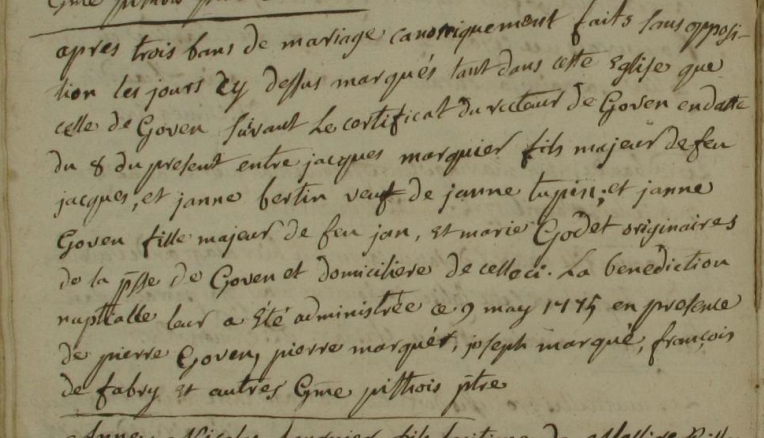 apres trois bans de mariage canoniquement faits sans opposi-
tion les jours cy dessus marqués tant dans cette Eglise que
celle de Goven suivant le certificat du recteur de Goven en datte
du 8 du present entre jacques marquier fils majeur de feu
jacques, et janne bertin veuf de janne tupin, et janne
Goven fille majeur de feu jan, et marie Godet originaires
de la psse de Goven et domiciliere de celleci. La benediction
nuptialle leur a été administrée ce 9 may 1775 en presence
de pierre Goven, pierre marquér, joseph marqué, françois
de fabry et autres Gme pithois ptre